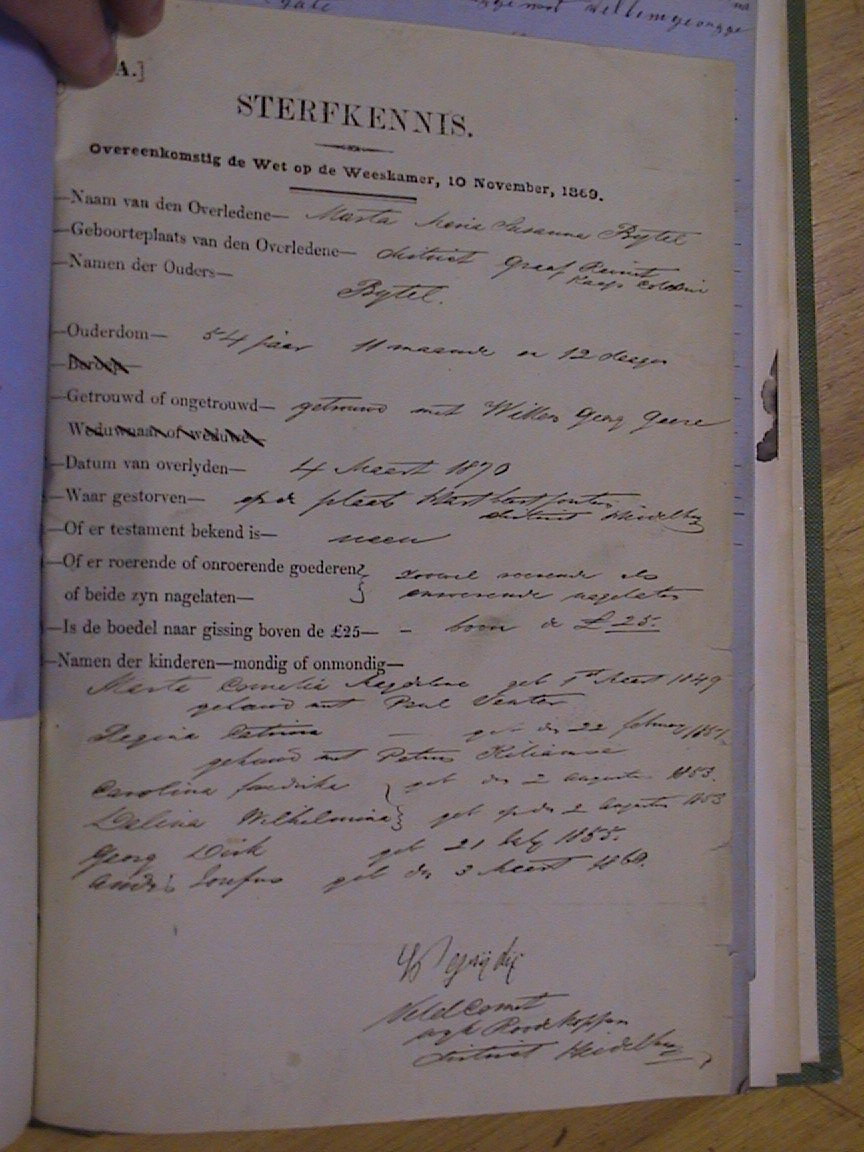 A.]
STERFKENNIS.
Overeenkomstig de Wet op de Weeskamer, 10 November, 1869.
—Naam van den Overledene— Marta Maria Susanna Bytel
—Geboorteplaats van den Overledene— district Graaf Reinet
Kaaps Colonie
—Namen der Ouders—
Bytel.
—Ouderdom— 54 jaar 11 maande en 12 dagen
—Beroep—
—Getrouwd of ongetrouwd— getrouwd met Willem Georg
Weduwnaar of weduwe—
—Datum van overlyden— 4 Maart 1870
—Waar gestorven— op de plaats
district Heidelberg
—Of er testament bekend is— neen
—Of er roerende of onroerende goederen
of beide zyn nagelaten— zoowel roerende als
onroerende nagelaten
—Is de boedel naar gissing boven de £25— - boven de £25.
—Namen der kinderen—mondig of onmondig—
Marta Cornelia Magdalena geb 1st Maart 1849
getrouwd met Paul Venter
Regina Catrina — geb den 22 february
getrouwd met Petrus
Carolina fredrika geb den 2 augustus 1853.
Wilhelmina geb op den 2 augustus 1853
Georg Dirk geb 21 July 1855.
geb den 3 Maart
Veld Cornet
wyk Roodekoppen
district Heidelberg